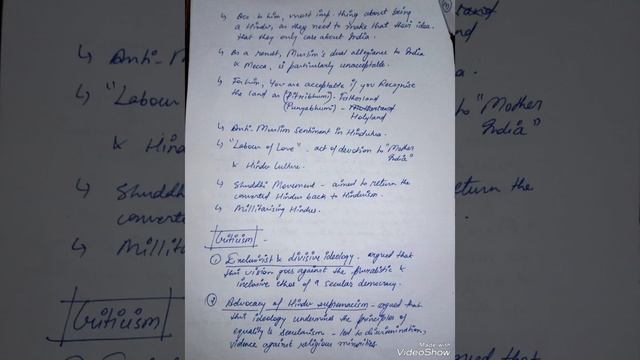 ↳ Acc to him, most imp. thing about being
a Hindu, as they need to make that their idea
that they only care about India.
↳ As a result, Muslim's dual allegiance to India
& Mecca, is particularly unacceptable.
↳ For him, You are acceptable if you Recognise
the land as (Pitribhumi) - Fatherland
(Punyabhumi) - Holyland
↳ Anti-Muslim sentiment in Hindutva.
↳ "Labour of Love" - act of devotion to "Mother India"
& Hindu Culture.
↳ Shuddhi Movement - aimed to return the
converted Hindus back to Hinduism.
↳ Millitarising Hindus.
Criticism -
① Exclusivist & divisive ideology - argued that
this vision goes against the pluralistic &
inclusive ethos of a secular democracy.
② Advocacy of Hindu supremacism - argued that
this ideology undermined the principles of
equality & secularism - led to discrimination,
violence against religious minorities.
↳ Anti-M
↳ "Labour
& Hind
↳ Shuddh
converte
↳ Millita
Criticism
"Mother
India"
return the
Made with
VideoShow